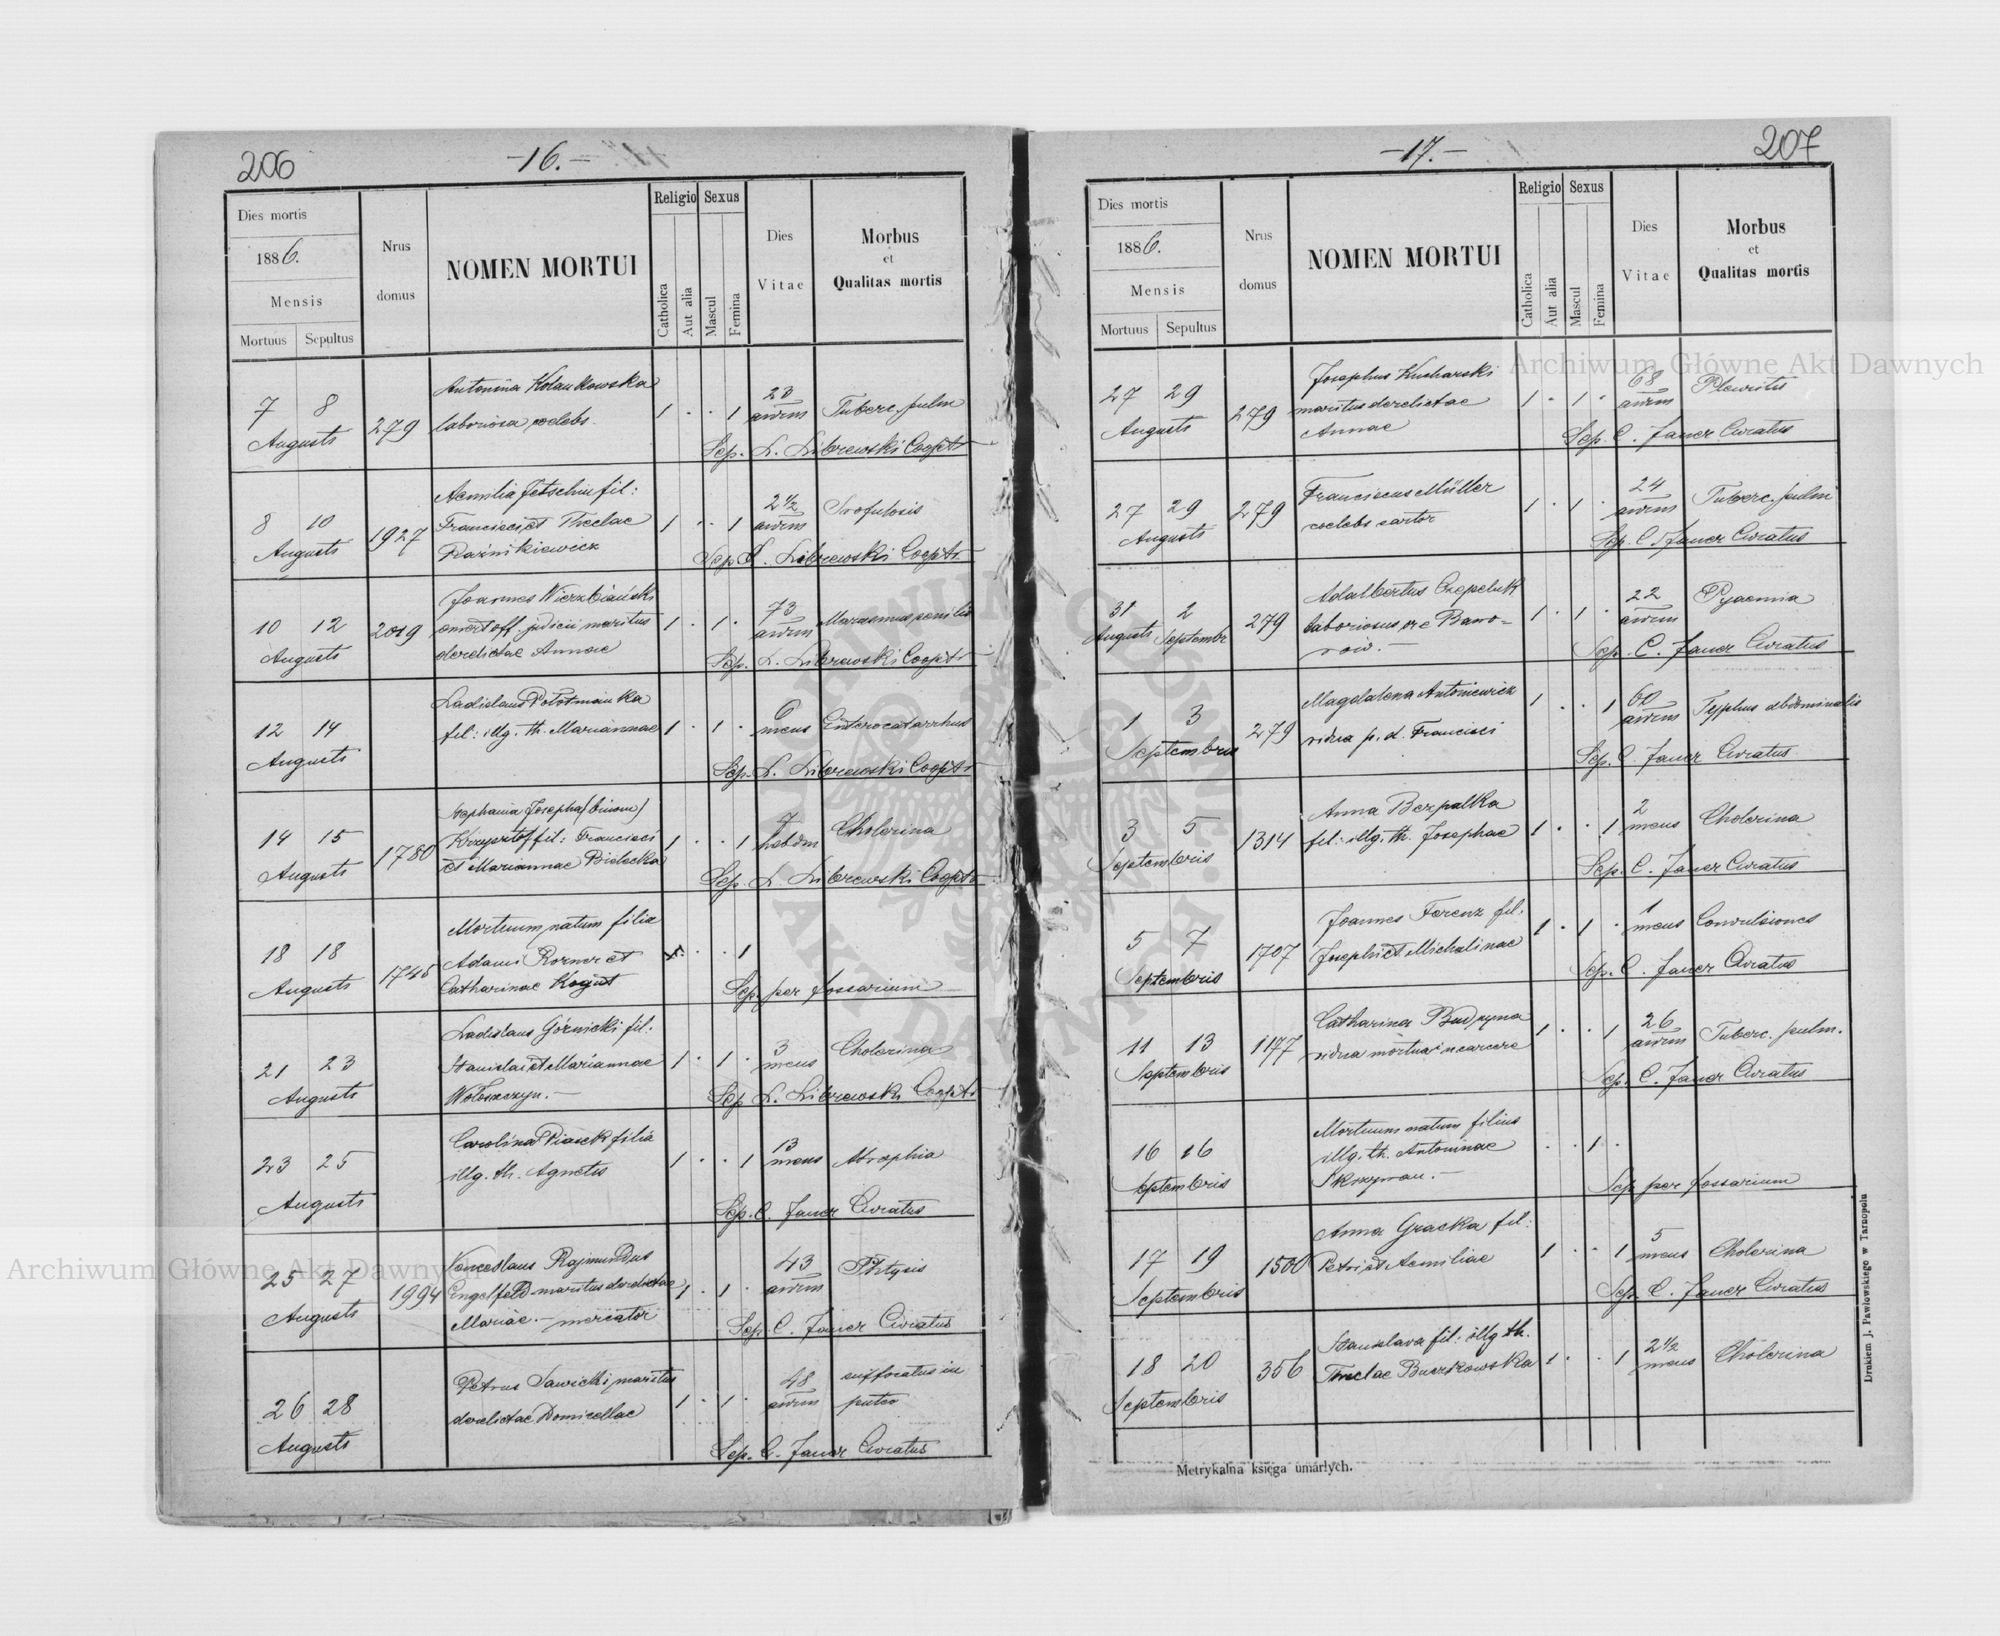 206
-16.-
Dies mortis
1886.
Mensis
Mortuus Sepultus
Nrus domus
NOMEN MORTUI
Religio
Catholica
Aut alia
Sexus
Mascul
Femina
Dies Vitae
Morbus
et
Qualitas mortis
7 8
Augusti
279
Antonina
laboriosa coelebs.
1 · · 1
23
annorum
Tuberc. pulm
Sep. L. Librewski Coopts
8 10
Augusti
1927
Aemilia fil:
Francisci et Theclae
Raźnikiewicz
1 · · 1
2 1/2
annorum
Scrofulosis
Sep. L. Librewski Coopts
10 12
Augusti
2019
Joannes Wierzbiański
off. judicii maritus
derelictae Annae
1 · 1 ·
73
annorum
Marasmus senilis
Sep. L. Librewski Coopts
12 14
Augusti
Ladislaus
fil: illg. th. Mariannae
1 · 1 ·
6
mens
Enterocatarrhus
Sep. L. Librewski Coopts
14 15
Augusti
1780
Stephania Josepha (binom)
Krzysztof fil: Francisci
et Mariannae Bielecka
1 · · 1
hebdm
Cholerina
Sep. L. Librewski Coopts
18 18
Augusti
1745
Mortuum natum filia
Adami Korner et
Catharinae Kogut
· · 1
Sep. per fossarium
21 23
Augusti
Ladislaus Górnicki fil.
Stanislai et Mariannae
Wołoszczyn. —
1 · 1 ·
3
mens
Cholerina
Sep. L. Librewski Coopts
23 25
Augusti
Carolina Piasek filia
illg. th. Agnetis
1 · · 1
13
mens
Atrophia
Sep. C. Jauer Curatus
25 27
Augusti
1994
Venceslaus Rajmundus
Engelfeld maritus derelictae
Mariae. — mercator
1 · 1 ·
43
annorum
Phtysis
Sep. C. Jauer Curatus
26 28
Augusti
Petrus Sawicki maritus
derelictae Domicellae
1 · 1 ·
48
annorum
suffocatus in
puteo
Sep. C. Jauer Curatus
207
-17.-
Dies mortis
1886.
Mensis
Mortuus Sepultus
Nrus domus
NOMEN MORTUI
Religio
Catholica
Aut alia
Sexus
Mascul
Femina
Dies Vitae
Morbus
et
Qualitas mortis
27 29
Augusti
279
Josephus Kucharski
maritus derelictae
Annae
1 · 1 ·
68
annorum
Pleuritis
Sep. C. Jauer Curatus
27 29
Augusti
279
Franciscus Müller
coelebs sartor
1 · 1 ·
24
annorum
Tuberc. pulm
Sep. C. Jauer Curatus
31 2
Augusti Septembr
279
Adalbertus Czepeluk
laboriosus
1 · 1 ·
22
annorum
Pyaemia
Sep. C. Jauer Curatus
1 3
Septembris
279
Magdalena Antoniewicz
vidua p. d. Francisci
1 · · 1
60
annorum
Typhus abdominalis
Sep. C. Jauer Curatus
3 5
Septembris
1314
Anna Bezpalka
fil: illg. th. Josephae
1 · · 1
2
mens
Cholerina
Sep. C. Jauer Curatus
5 7
Septembris
1707
Joannes Ferenz fil.
Josephi et Michalinae
1 · 1 ·
1
mens
Convulsiones
Sep. C. Jauer Curatus
11 13
Septembris
1177
Catharina
vidua mortua in carcere
1 · · 1
26
annorum
Tuberc. pulm.
Sep. C. Jauer Curatus
16 16
Septembris
Mortuum natum filius
illg. th. Antoninae
· · 1 ·
Sep per fossarium
17 19
Septembris
1500
Anna Gracka fil:
Petri et Aemiliae
1 · · 1
5
mens
Cholerina
Sep. C. Jauer Curatus
18 20
Septembris
356
Stanislava fil: illg th.
Theclae Buczkowska
1 · · 1
2 1/2
mens
Cholerina
Metrykalna księga umarłych.
Drukiem J. Pawłowskiego w Tarnopolu
Archiwum Główne Akt Dawnych
Archiwum Główne Akt Dawnych
ARCHIWUM GŁÓWNE AKT DAWNYCH